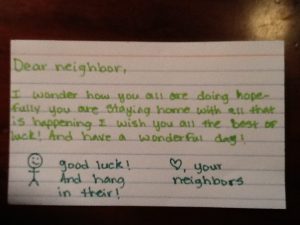 Dear neighbor,
I wonder how you all are doing hope-
fully you are staying home with all that
is happening I wish you all the best of
luck! And have a wonderful day!
good luck!
And hang
in their!
♡, your
neighbors